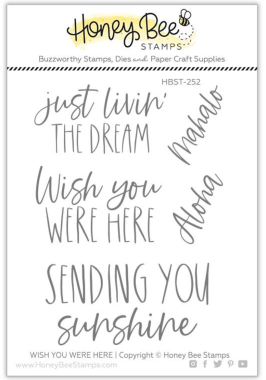 Honey Bee
STAMPS
Buzzworthy Stamps, Dies and Paper Craft Supplies
HBST-252
just livin'
THE DREAM
Mahalo
Wish you
WERE HERE
Aloha
SENDING YOU
sunshine
WISH YOU WERE HERE | Copyright © Honey Bee Stamps
www.HoneyBeeStamps.com